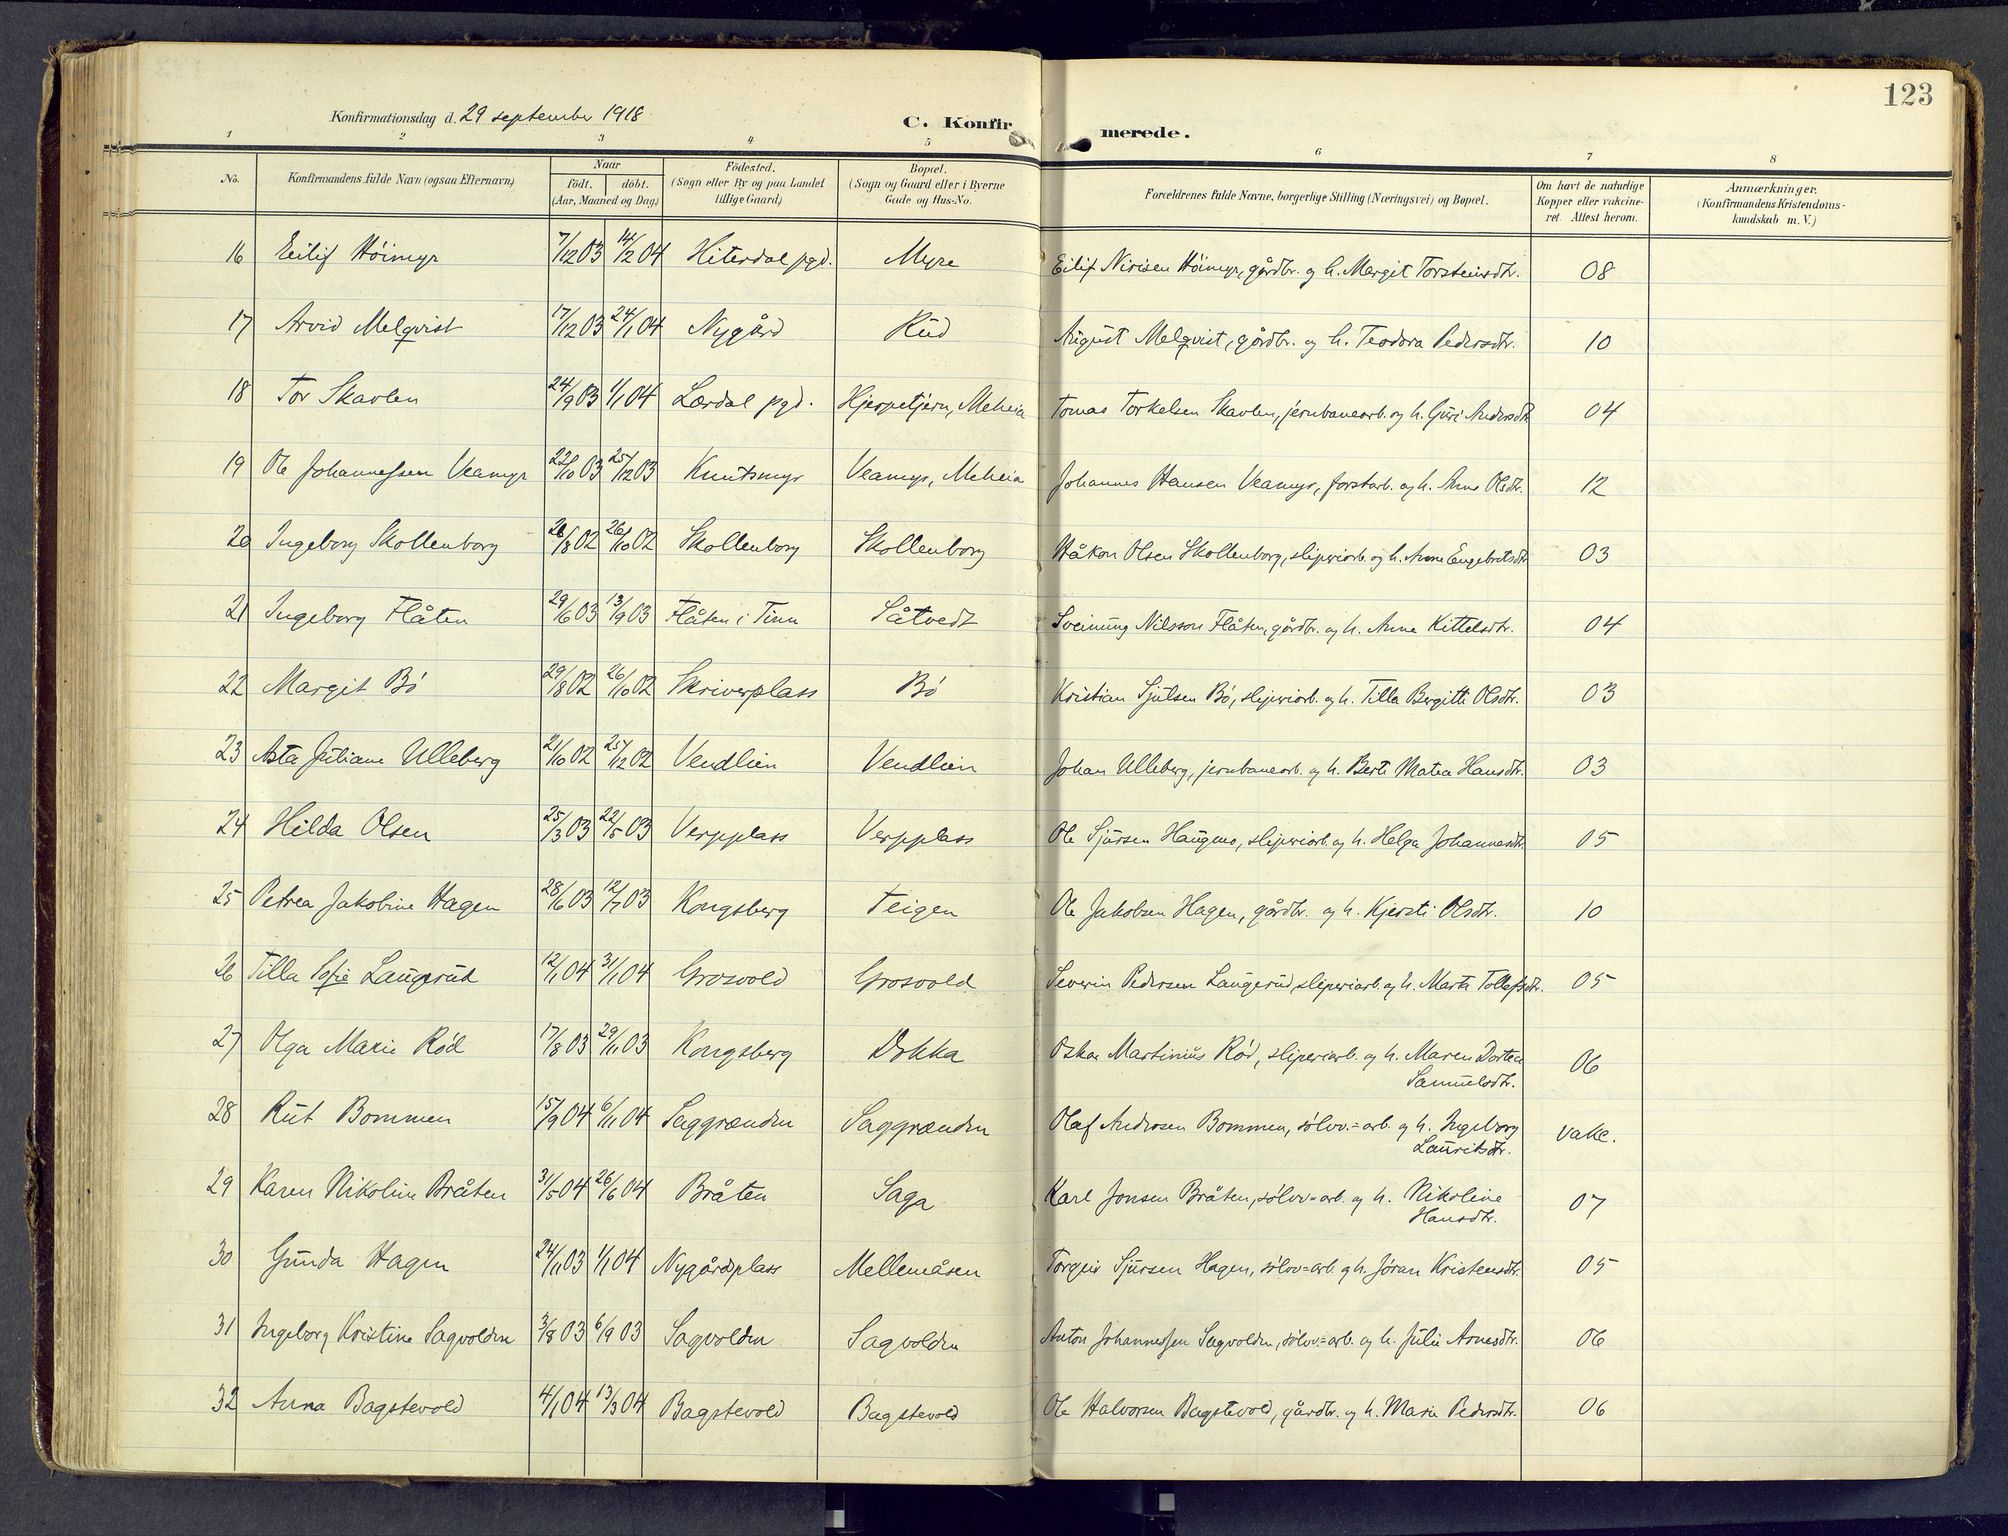 123
Konfirmationsdag d. 29 september 1918
C. Konfirmerede.
1 2 3 4 5 6 7 8
No. | Konfirmandens fulde Navn (ogsaa Efternavn) | Naar født. døbt. (Aar, Maaned og Dag) | Fødested. (Sogn eller By og paa Landet tillige Gaard) | Bopæl. (Sogn og Gaard eller i Byerne Gade og Hus-No. | Forældrenes fulde Navne, borgerlige Stilling (Næringsvei) og Bopæl. | Om havt de naturlige Kopper eller vakcineret. Attest herom. | Anmærkninger. (Konfirmandens Kristendomskundskab m. V.)
16 Eilif Höimyr 7/12 03 14/2 04 Hiterdal pgd. Myre Eilif Nirisen Höimyr, gårdbr. og h. Margit Torsteinsdtr. 08
17 Arvid Melqvist 17/12 03 24/1 04 Nygård Rud August Melqvist, gårdbr. og h. Teodora Pedersdtr. 10
18 Tor Skavlen 24/9 03 1/1 04 Lærdal pgd. Hjerpetjern, Meheia Tomas Torkelsen Skavlen, jernbanearb. og h. Guri Andersdtr. 04
19 Ole Johannessen Veamyr 22/10 03 25/12 03 Knutsmyr Veamyr, Meheia Johannes Hansen Veamyr, forstarb. og h. Anne Olsdtr. 12
20 Ingeborg Skollenborg /8 02 26/10 02 Skollenborg Skollenborg Håkon Olsen Skollenborg, sliperiarb. og h. Anne Engebretsdtr. 03
21 Ingeborg Flåten 29/6 03 13/9 03 Flåten i Tinn Såtvedt Sveinung Nilsson Flåten, gårdbr. og h. Anne Kittelsdtr. 04
22 Margit Bö 29/8 02 26/10 02 Skriverplass Bö Kristian Sjulsen Bö, sliperiarb. og h. Tilla Bergitte Olsdtr. 03
23 Asta Juliane Ulleberg 21/10 02 25/12 02 Vendlien Vendlien Johan Ulleberg, jernbanearb. og h. Berte Matea Hansdtr. 03
24 Hilda Olsen 25/3 03 22/5 03 Verpplass Verpplass Ole Sjursen Haugmo, sliperiarb. og h. Helga Johannesdtr. 05
25 Petrea Jakobine Hagen 28/6 03 12/7 03 Kongsberg Teigen Ole Jakobsen Hagen, gårdbr. og h. Kjersti Olsdtr. 10
26 Tilla Sofie Laugerud 12/1 04 31/1 04 Grosvold Grosvold Severin Pedersen Laugerud, sliperiarb. og h. Marte Tollefsdtr. 05
27 Olga Marie Röd 17/8 03 29/11 03 Kongsberg Dokka Oskar Martinius Röd, sliperiarb. og h. Maren Dorten Samuelsdtr. 06
28 Rut Bommen 15/9 04 6/11 04 Saggrænden Saggrænden Olaf Andersen Bommen, sölvv.=arb. og h. Ingeborg Lauritsdtr. vakc.
29 Karen Nikoline Bråten 31/5 04 26/6 04 Bråten Saga Karl Jonsen Bråten, sölvv=arb. og h. Nikoline Hansdtr. 07
30 Gunda Hagen 24/11 03 1/1 04 Nygårdsplass Mellemåsen Torgeir Sjursen Hagen, sölvv=arb. og h. Jöran Kristensdtr. 05
31 Ingeborg Kristine Sagvolden 3/8 03 6/9 03 Sagvolden Sagvolden Anton Johannessen Sagvolden, sölvv.=arb. og h. Julie Arnesdtr. 06
32 Anna Bagstevold 4/1 04 13/3 04 Bagstevold Bagstevold Ole Halvorsen Bagstevold, gårdbr. og h. Marie Pedersdtr. 06